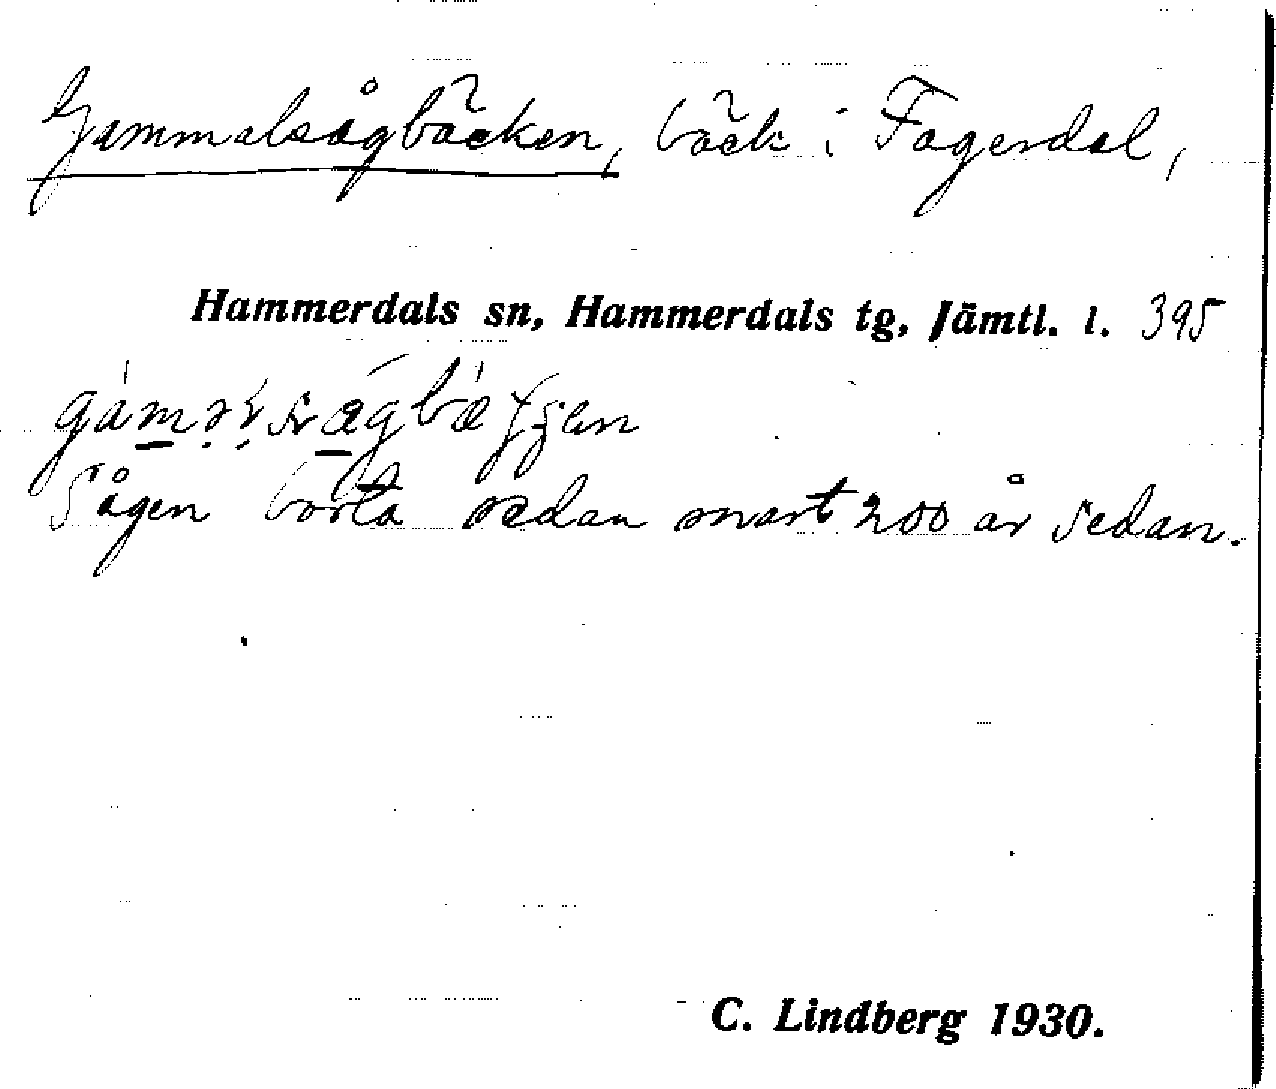 Gammalsågbäcken, bäck i Fagerdal,
Hammerdals sn, Hammerdals tg, Jämtl. l. 395
Sågen borta sedan snart 200 år sedan.
C. Lindberg 1930.